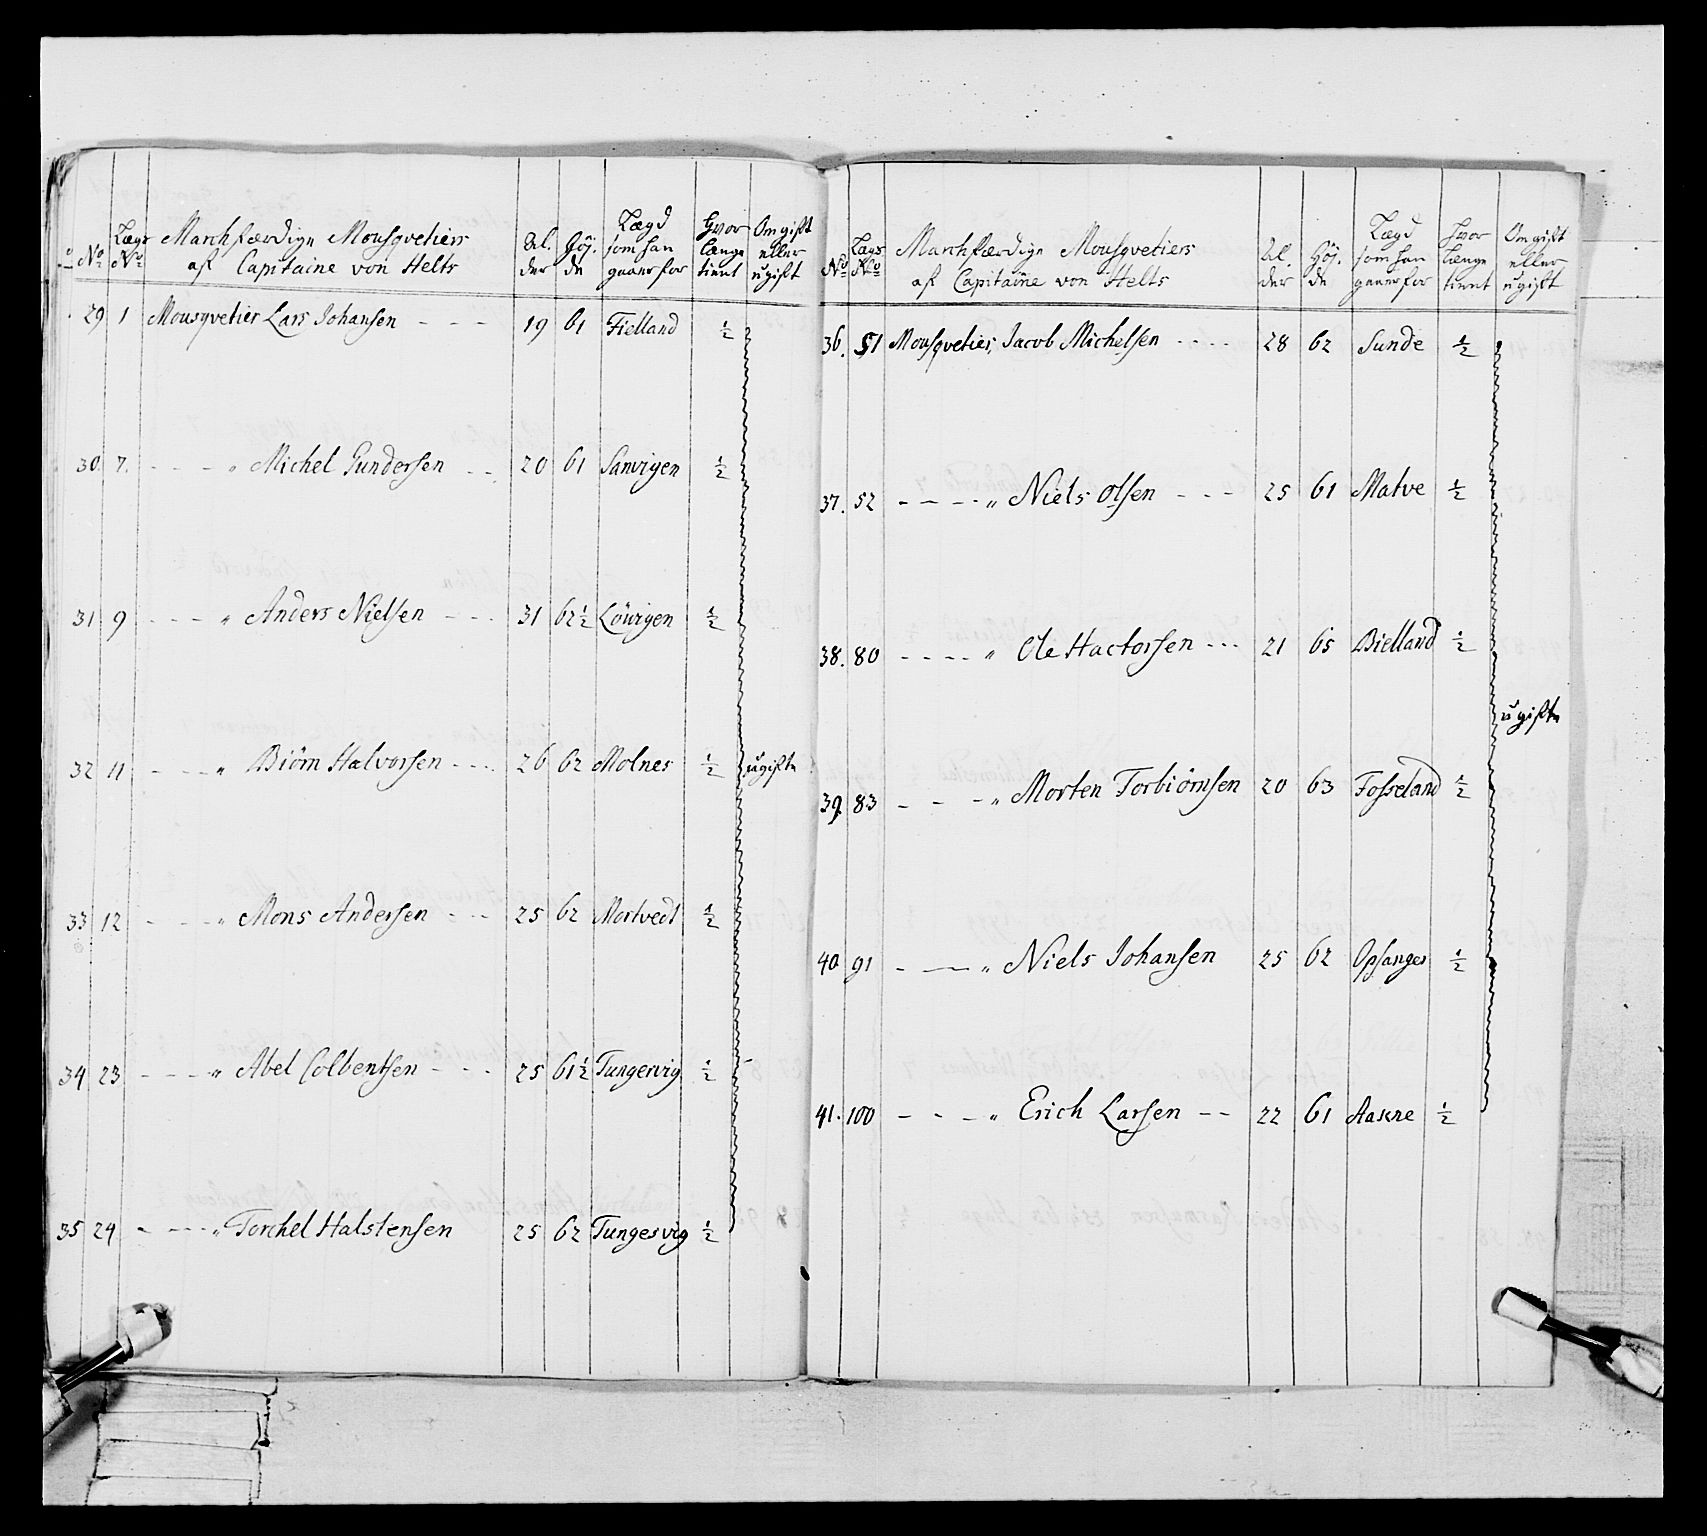 No Lægs No Marchfærdige Mousqvetiers af Capitaine von Helts Al. der Höj. de Lægd som han gaaer for Hvor længe tient Om gift eller ugift
29 1 Mousqvetier Lars Johansen - - - 19 61 Fielland ½
30. 7. - - - " Michel Gundersen - - 20 61 Sanvigen ½
31 9 - - - " Anders Nielsen - - - 31 62½ Löwigen ½
32 11 - - - " Biörn Halvorsen - - - 26 62 Molnes ½ ugifte
33 12 - - - " Mons Andersen - - - 25 62 Mortvedt ½
34 23 - - - " Abel Colbentsen - - - 25 61½ Tungesvig ½
35 24 - - - " Torchel Halstensen 25 62 Tungesvig ½
No Lægs No Marchfærdige Mousqvetiers af Capitaine von Helts Al. der Höj. de Lægd som han gaaer for Hvor længe tient Om gift eller ugift
36. 51 Mousqvetier, Jacob Michelsen - - - - 28 62 Sunde ½
37. 52 - - - - " Niels Olsen - - - 25 61 Matve ½
38. 80 - - - - " Ole Hactorsen - - - 21 65 Bielland ½
ugifte
39. 83 - - - " Morten Torbiörnsen 20 63 Fosseland ½
40 91 - - " Niels Johansen 25 62 Opsanger ½
41. 100 - - - " Erich Larsen - - 22 61 Aakre ½